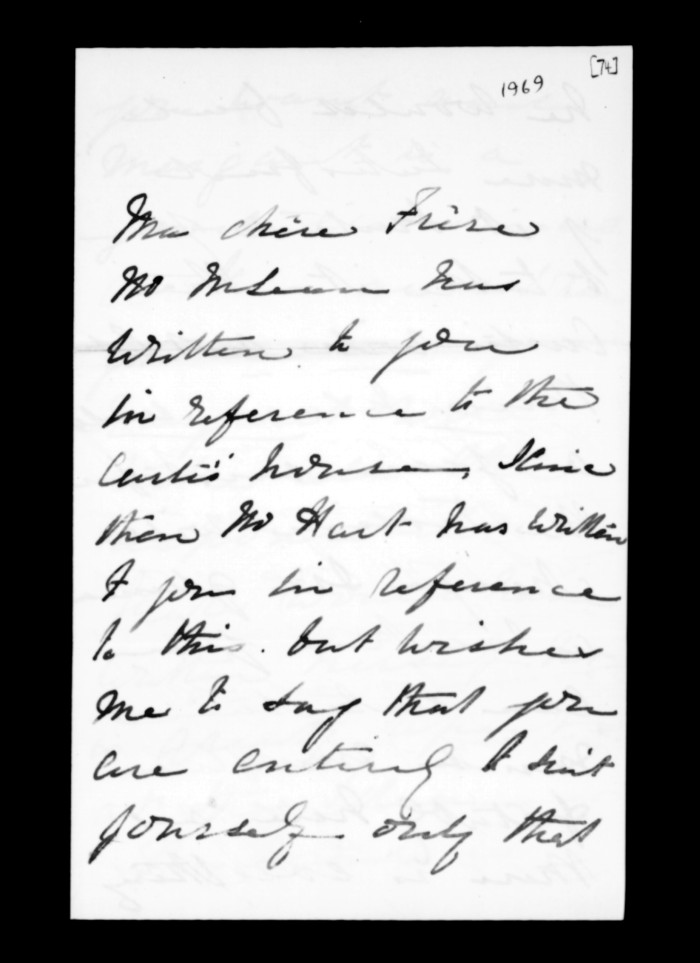 [74]
1969
Ma chère Frère
Mr McLean has
written to you
in reference to the
Curtis' house, Since
then Mr Hart has written
to you in reference
to this. but wishes
me to say that you
are entirely to suit
yourself only that